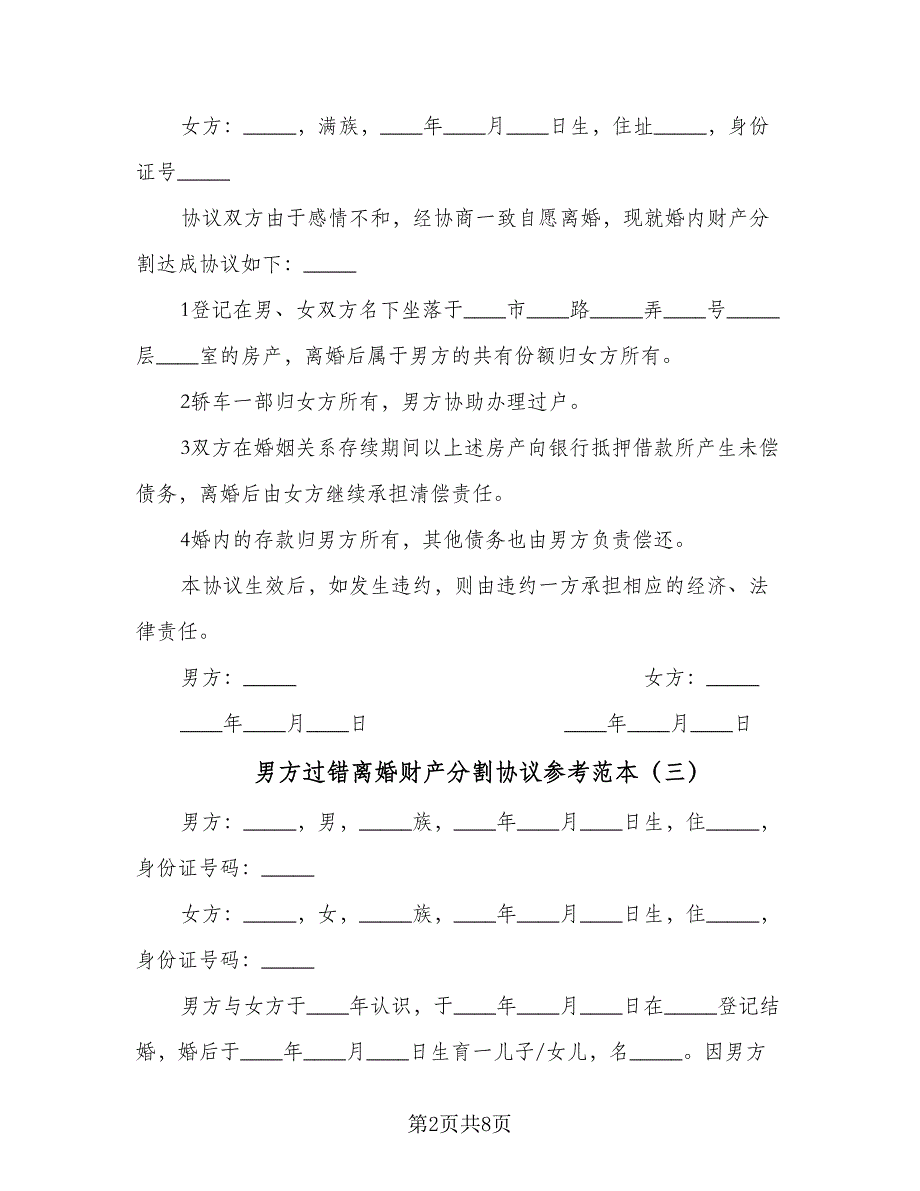 女方：_____，满族，____年____月____日生，住址_____，身份
证号_____
协议双方由于感情不和，经协商一致自愿离婚，现就婚内财产分
割达成协议如下：_____
1登记在男、女双方名下坐落于____市____路_____弄____号_____
层____室的房产，离婚后属于男方的共有份额归女方所有。
2轿车一部归女方所有，男方协助办理过户。
3双方在婚姻关系存续期间以上述房产向银行抵押借款所产生未偿
债务，离婚后由女方继续承担清偿责任。
4婚内的存款归男方所有，其他债务也由男方负责偿还。
本协议生效后，如发生违约，则由违约一方承担相应的经济、法
律责任。
男方：_____ 女方：_____
____年____月____日 ____年____月____日
男方过错离婚财产分割协议参考范本（三）
男方：_____，男，_____族，____年____月____日生，住_____，
身份证号码：_____
女方：_____，女，_____族，____年____月____日生，住_____，
身份证号码：_____
男方与女方于____年认识，于____年____月____日在_____登记结
婚，婚后于____年____月____日生育一儿子/女儿，名_____。因男方
第2页共8页